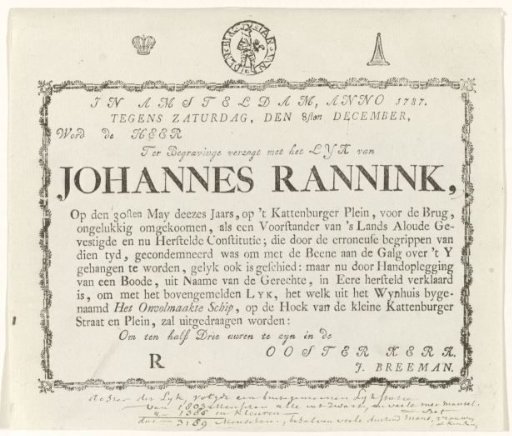 IN AMSTELDAM, ANNO 1787.
TEGENS ZATURDAG, DEN 8sten DECEMBER,
Word de HEER
Ter Begravinge verzogt met het LYK van
JOHANNES RANNINK,
Op den 30sten May deezes Jaars, op 't Kattenburger Plein, voor de Brug,
ongelukkig omgekoomen, als een Voorstander van 's Lands Aloude Ge-
vestigde en nu Herstelde Constitutie; die door de erroneuse begrippen van
dien tyd, gecondemneerd was om met de Beene aan de Galg over 't Y
gehangen te worden, gelyk ook is geschied: maar nu door Handoplegging
van een Boode, uit Naame van de Gerechte, in Eere hersteld verklaard
is, om met het bovengemelden LYK, het welk uit het Wynhuis byge-
naamd Het Onvolmaakte Schip, op de Hoek van de kleine Kattenburger
Straat en Plein, zal uitgedraagen worden:
Om ten half Drie uuren te zyn in de
OOSTER KERK.
R
J. BREEMAN.
Lyk, volgde een
van 1803 Menschen alle
1386 in
3189 Menschen, behalven